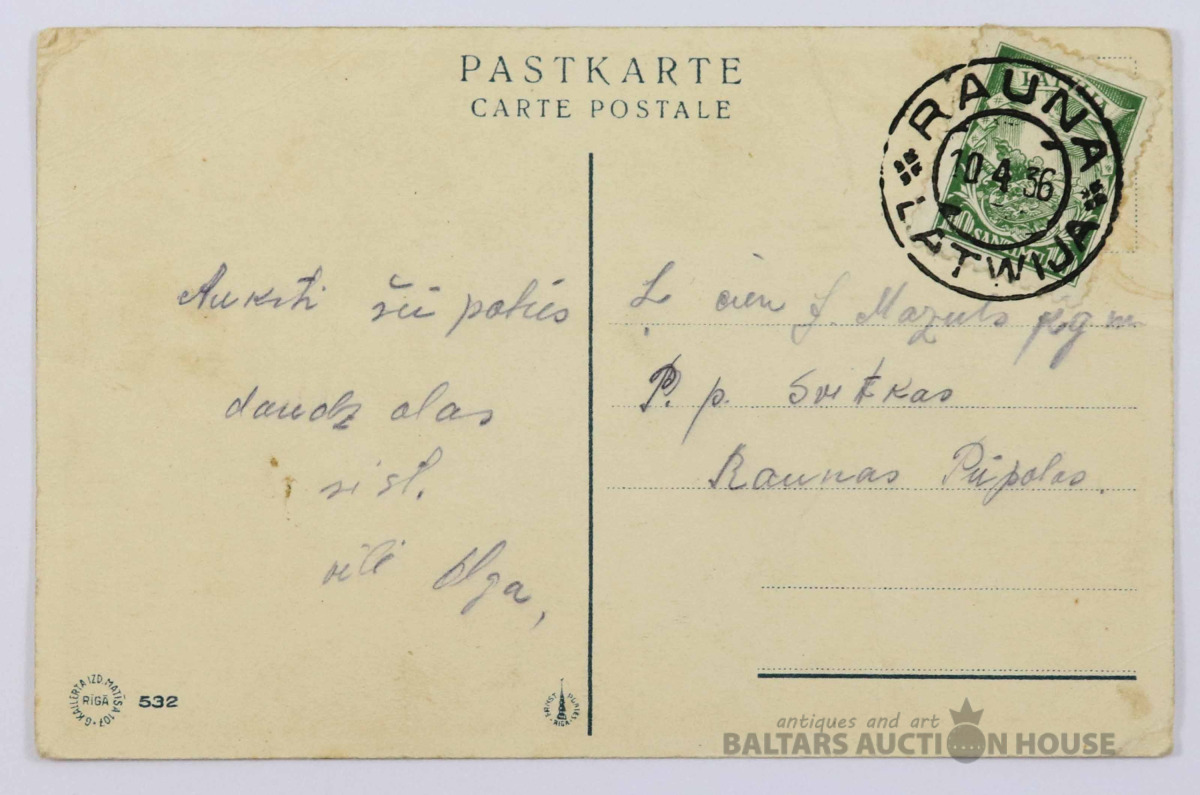 PASTKARTE
CARTE POSTALE
LATVIJA
SANTIMU
RAUNA
10 4 36
LATWIJA
daudz olas
sist.
vēlē Olga,
L. cien J. Mazuls kgm
P. p. Svitkas
Raunas Pūpolos.
G. KALLERTA IZD. MATĪSA 107
RĪGĀ
532
antiques and art
BALTARS AUCTION HOUSE